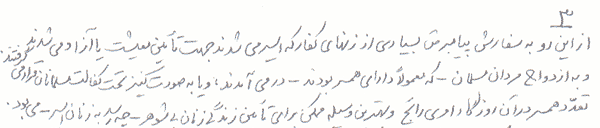 ۳
از این رو به سفارش پیامبر ص بسیاری از زنهای کفار که اسیر می شدند جهت تأمین معیشت یا آزاد می شدند
و به ازدواج مردان مسلمان - که معمولاً دارای همسر بودند - در می آمدند، و یا به صورت کنیز تحت کفالت مسلمانان قرار می گرفتند.
تعدّد همسر در آن روزگار امری رائج و بهترین وسیله ممکن برای تأمین زندگی زنان بی شوهر - چه رسد به زنان اسیر - می بود.